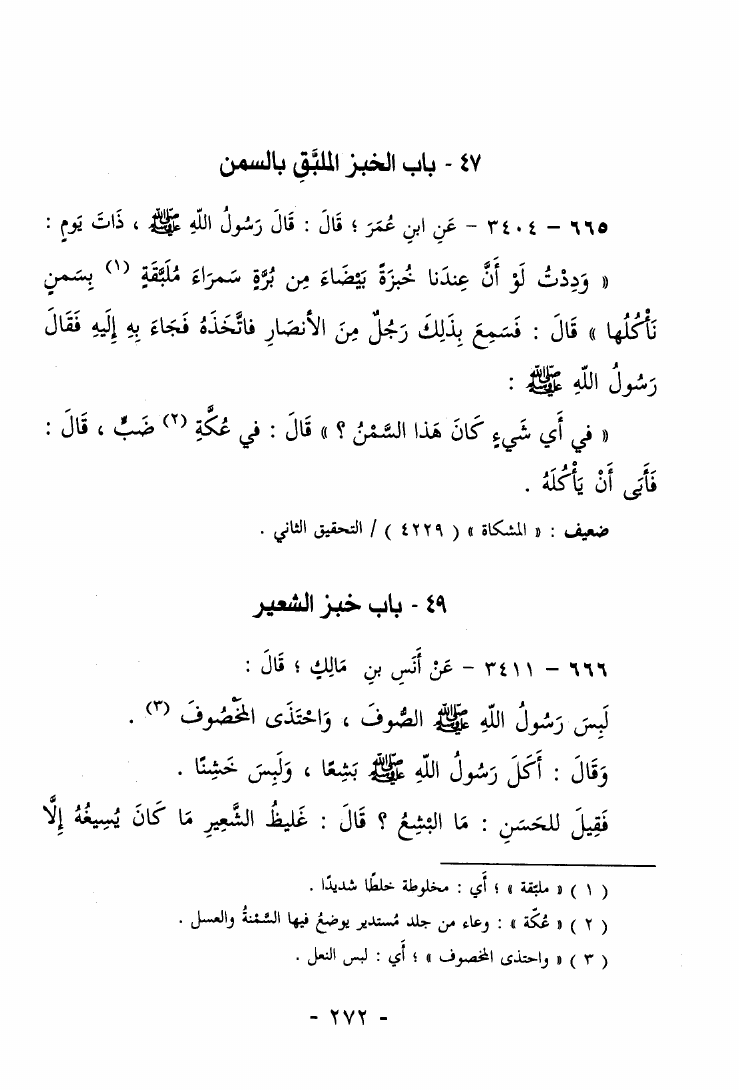 ٤٧ - باب الخبز الملبَّقِ بالسمن
٦٦٥ - ٣٤٠٤ - عَنِ ابنِ عُمَرَ ؛ قَالَ : قَالَ رَسُولُ اللّهِ ﷺ ، ذَاتَ يَومٍ :
« وَدِدْتُ لَوْ أَنَّ عِندَنا خُبزَةً بَيْضَاءَ مِن بُرَّةٍ سَمرَاءَ مُلَبَّقَةٍ (١) بِسَمنٍ
نَأْكُلُها » قَالَ : فَسَمِعَ بِذَلِكَ رَجُلٌ مِنَ الأنصَارِ فاتَّخَذَهُ فَجَاءَ بِهِ إِلَيهِ فَقَالَ
رَسُولُ اللّهِ ﷺ :
« في أَي شَيءٍ كَانَ هَذا السَّمْنُ ؟ » قَالَ : في عُكَّةِ (٢) ضَبٍّ ، قَالَ :
فَأَبَى أَنْ يَأْكُلَهُ .
ضعيف : « المشكاة » ( ٤٢٢٩ ) / التحقيق الثاني .
٤٩ - باب خبز الشعير
٦٦٦ - ٣٤١١ - عَنْ أَنَسِ بنِ مَالِكٍ ؛ قَالَ :
لَبِسَ رَسُولُ اللّهِ ﷺ الصُّوفَ ، وَاحْتَذَى المَخْصُوفَ (٣) .
وَقَالَ : أَكَلَ رَسُولُ اللّهِ ﷺ بَشِعًا ، وَلَبِسَ خَشِنًا .
فَقِيلَ للحَسَنِ : مَا البْشِعُ ؟ قَالَ : غَلِيظُ الشَّعِيرِ مَا كَانَ يُسِيغُهُ إِلَّا
( ١ ) « ملبّقة » ؛ أَي : مخلوطة خلطًا شديدًا .
( ٢ ) « عُكّة » : وعاء من جلد مُستدير يوضعُ فيها السَّمْنةُ والعسل .
( ٣ ) « واحتذى المخصوف » ؛ أَي : لبس النعل .
- ٢٧٢ -